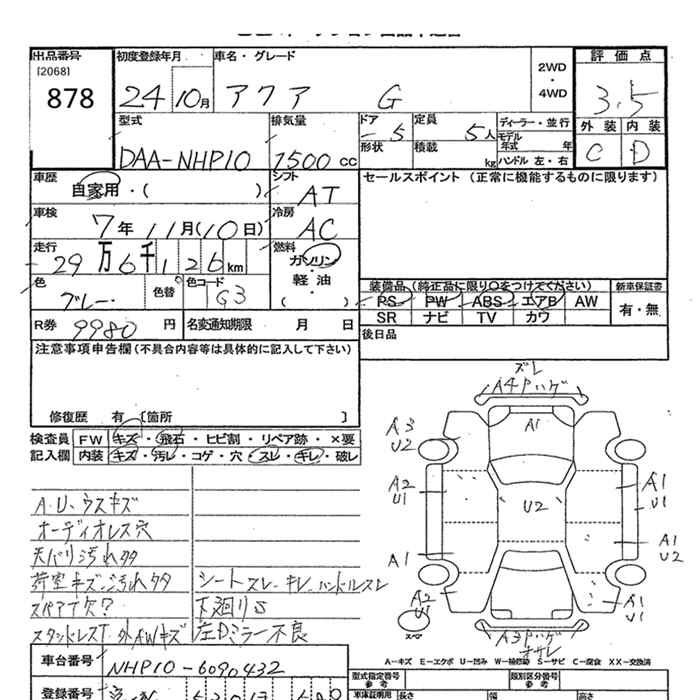 出品番号 初度登録年月 車名・グレード 2WD ・ 4WD 評価点
[2068]
878 24 10月 アクア G 3.5
型式 排気量 ドア 5 定員 5人 ディーラー・並行 外装 内装
DAA-NHP10 1500 cc 形状 積載 kg モデル年式 年 ハンドル 左・右 C D
車歴 自家用・( ) シフト AT セールスポイント(正常に機能するものに限ります)
車検 7年 11月(10日) 冷房 AC
走行 29万6千126km 燃料 ガソリン・軽油・( )
色 ブレー 色替 色コード G3 装備品(純正品に限り○をつけてください) 新車保証書
PS PW ABS エアB AW 有・無
SR ナビ TV カワ
R券 9980円 名変通知期限 月 日 後日品
注意事項申告欄(不具合内容等は具体的に記入して下さい)
修復歴 有 [箇所 ]
検査員 FW キズ・飛石・ヒビ割・リペア跡・×要
記入欄 内装 キズ・汚レ・コゲ・穴・スレ・キレ・破レ
A.U.ウスキズ
オーディオレス穴
天バリ汚れタタ
荷室キズ.汚れタタ シートスレ.キレ.ハンドルスレ
スペアT欠? 下廻りS
スタッドレスT.外AWキズ 左Dミラー不良
ズレ
A4Pハゲ
A3 U2
A1
A2 U1
U2
A1 U1
A1
A1 U2
A2 U1
A1 U1
スペア
A3Pハゲ
オサレ
A-キズ E-エクボ U-凹み W-補修跡 S-サビ C-腐食 XX-交換済
車台番号 NHP10-6090432 型式指定番号 参考 類別区分番号 参考
登録番号 車庫証明用 長さ 幅 高さ